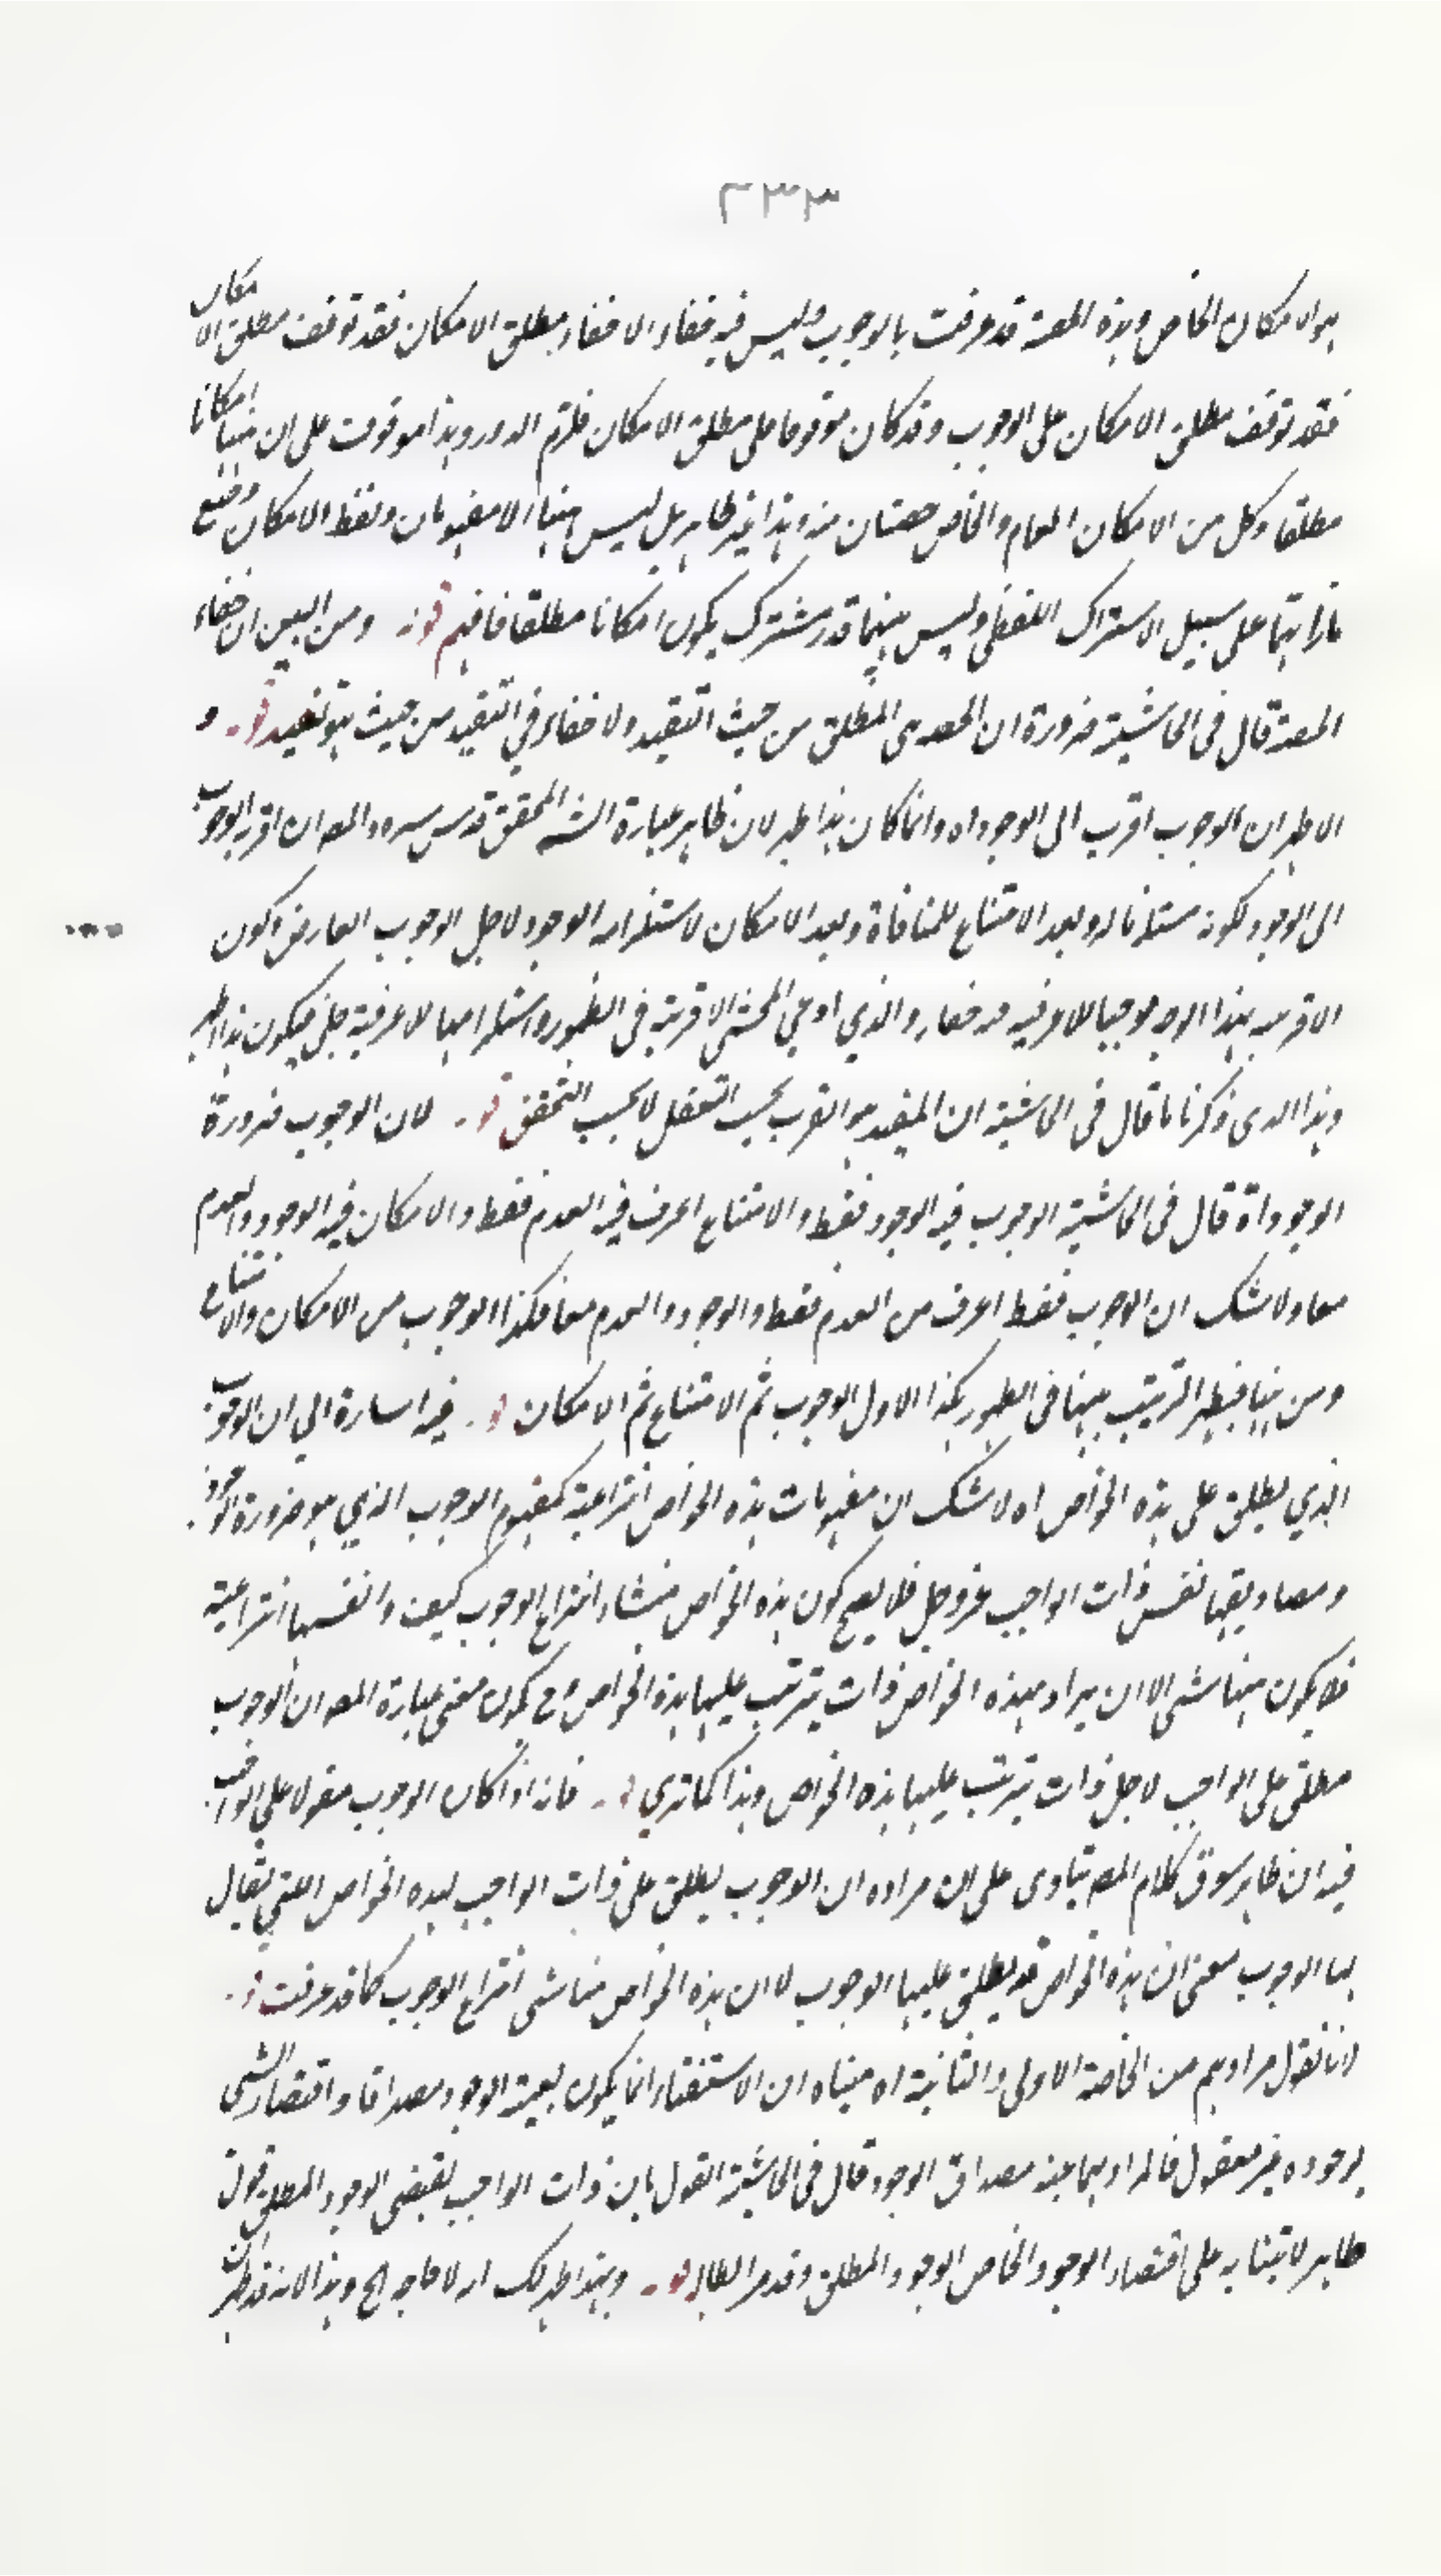 ٢٣٣
هو الامكان الخاص وهذه الحصة قد عرفت بالوجوب وليس فيه خفاء الا خفاء مطلق الامكان فقد توقف مطلق الامكان
فقد توقف مطلق الامكان على الوجوب وقد كان موقوفا على مطلق الامكان فلزم الدور وهذا موقوف على ان ههنا امكانا
مطلقا وكل من الامكان العام والخاص حصتان منه وهذا غير ظاهر بل ليس ههنا الا مفهومان ولفظ الامكان وضع
بازائهما على سبيل الاشتراك اللفظي وليس بينهما قدر مشترك يكون امكانا مطلقا فافهم قوله ومن البين ان خفاء
الحصة قال في الحاشية ضرورة ان الحصة هي المطلق من حيث التقييد ولا خفاء في التقييد من حيث هو تقييد قوله و
الاظهر ان الوجوب اقرب الى الوجود اه وانما كان هذا اظهر لان ظاهر عبارة الشه المحقق قدس سره والمص ان اقربية الوجوب
الى الوجود لكونه مستلزما له وبعد الامتناع للمنافاة وبعد الامكان لاستلزامه الوجود لاجل الوجوب العارض وكون
الاقربية بهذا الوجه موجبا للاعرفية فيه خفاء والذي ادعى المحشى الاقربية في الظهور واستلزامها للاعرفية جلي فيكون هذا اظهر
وهذا الذي ذكرنا ما قال في الحاشية ان المفيد هو القرب بحسب التعقل لا بحسب التحقق قوله لان الوجوب ضرورة
الوجود اه قال في الحاشية الوجوب فيه الوجود فقط والامتناع اعرف فيه العدم فقط والامكان فيه الوجود والعدم
معا ولا شك ان الوجوب فقط اعرف من العدم فقط والوجود والعدم معا فكذا الوجوب من الامكان والامتناع
ومن ههنا فيظهر الترتيب بينها في الظهور هكذا الاول الوجوب ثم الامتناع ثم الامكان قوله فيه اشارة الى ان الوجوب
الذي يطلق على هذه الخواص اه لا شك ان مفهومات هذه الخواص انتزاعية كمفهوم الوجوب الذي هو ضرورة الوجود
ومصاديقها نفس ذات الواجب عز وجل فلا يصح كون هذه الخواص منشاء انتزاع الوجوب كيف وانفسها انتزاعية
فلا يكون مناشى الا ان يراد بهذه الخواص ذات يترتب عليها هذه الخواص وح يكون معنى عبارة المص ان الوجوب
مطلق على الواجب لاجل ذات يترتب عليها هذه الخواص وهذا كما ترى قوله فانه اذا كان الوجوب مقولا على الواجب
فيه ان ظاهر سوق كلام المص ينادى على ان مراده ان الوجوب يطلق على ذات الواجب لهذه الخواص التي يقال
لها الوجوب بمعنى ان هذه الخواص قد يطلق عليها الوجوب لا ان هذه الخواص مناشى انتزاع الوجوب كما قد عرفت قوله
لانا نقول مرادهم من الخاصة الاولى والثانية اه مبناه ان الاستغناء انما يكون بعينية الوجود مصداقا واقتضاء الشى
لوجوده غير معقول فالمراد بهما عينية مصداق الوجود قال في الحاشية القول بان ذات الواجب يقتضى الوجود المطلق قول
ظاهرى لابتنائه على اقتضاء الوجود الخاص الوجود المطلق وقد مر ابطاله قوله وبهذا ظهر لك انه لا حاجة الخ وهذا لانه قد ظهر ان